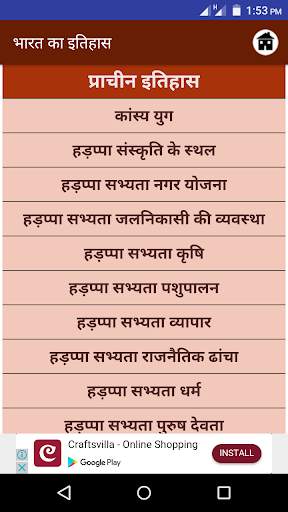 1:53 PM
भारत का इतिहास
प्राचीन इतिहास
कांस्य युग
हड़प्पा संस्कृति के स्थल
हड़प्पा सभ्यता नगर योजना
हड़प्पा सभ्यता जलनिकासी की व्यवस्था
हड़प्पा सभ्यता कृषि
हड़प्पा सभ्यता पशुपालन
हड़प्पा सभ्यता व्यापार
हड़प्पा सभ्यता राजनैतिक ढांचा
हड़प्पा सभ्यता धर्म
हड़प्पा सभ्यता पुरुष देवता
Craftsvilla - Online Shopping
Google Play
INSTALL